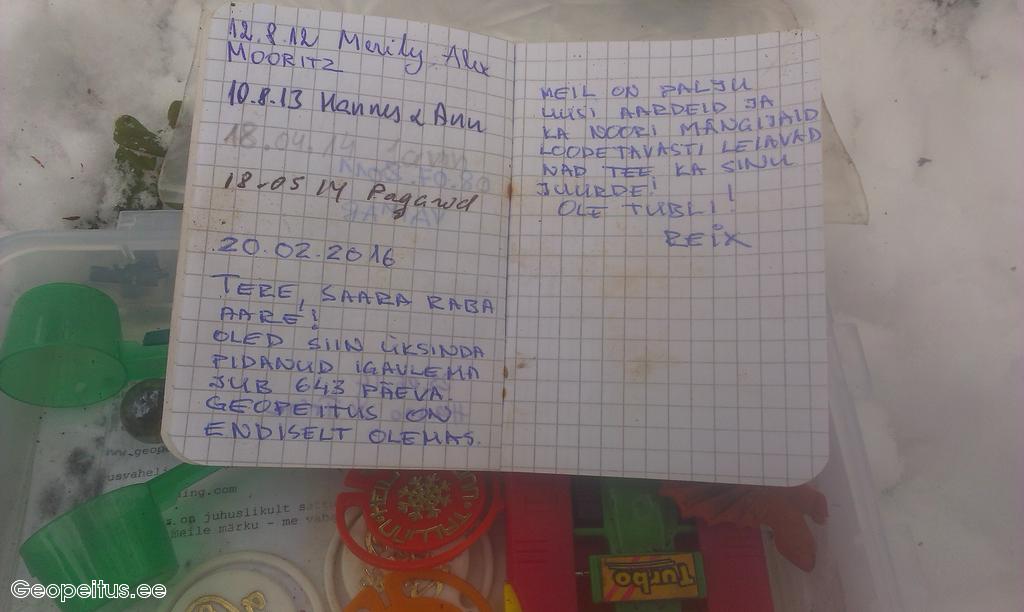 12.8.12 Merily Alex
MOORITZ
10.8.13 Hannes & Ann
18.04.14
18-05 14 Pagarid
20.02.2016
TERE, SAARA RABA
AARE!
OLED SIIN ÜKSINDA
PIDANUD IGAVLEMA
JUB 643 PÄEVA.
GEOPEITUS ON
ENDISELT OLEMAS.
MEIL ON PALJU
UUSI AARDEID JA
KA NOORI MÄNGIJAID
LOODETAVASTI LEIAVAD
NAD TEE KA SINU
JUURDE!
OLE TUBLI!
REIX
ing.com
on juhuslikult sattu
meile märku - me vahe
Turbo
Geopeitus.ee